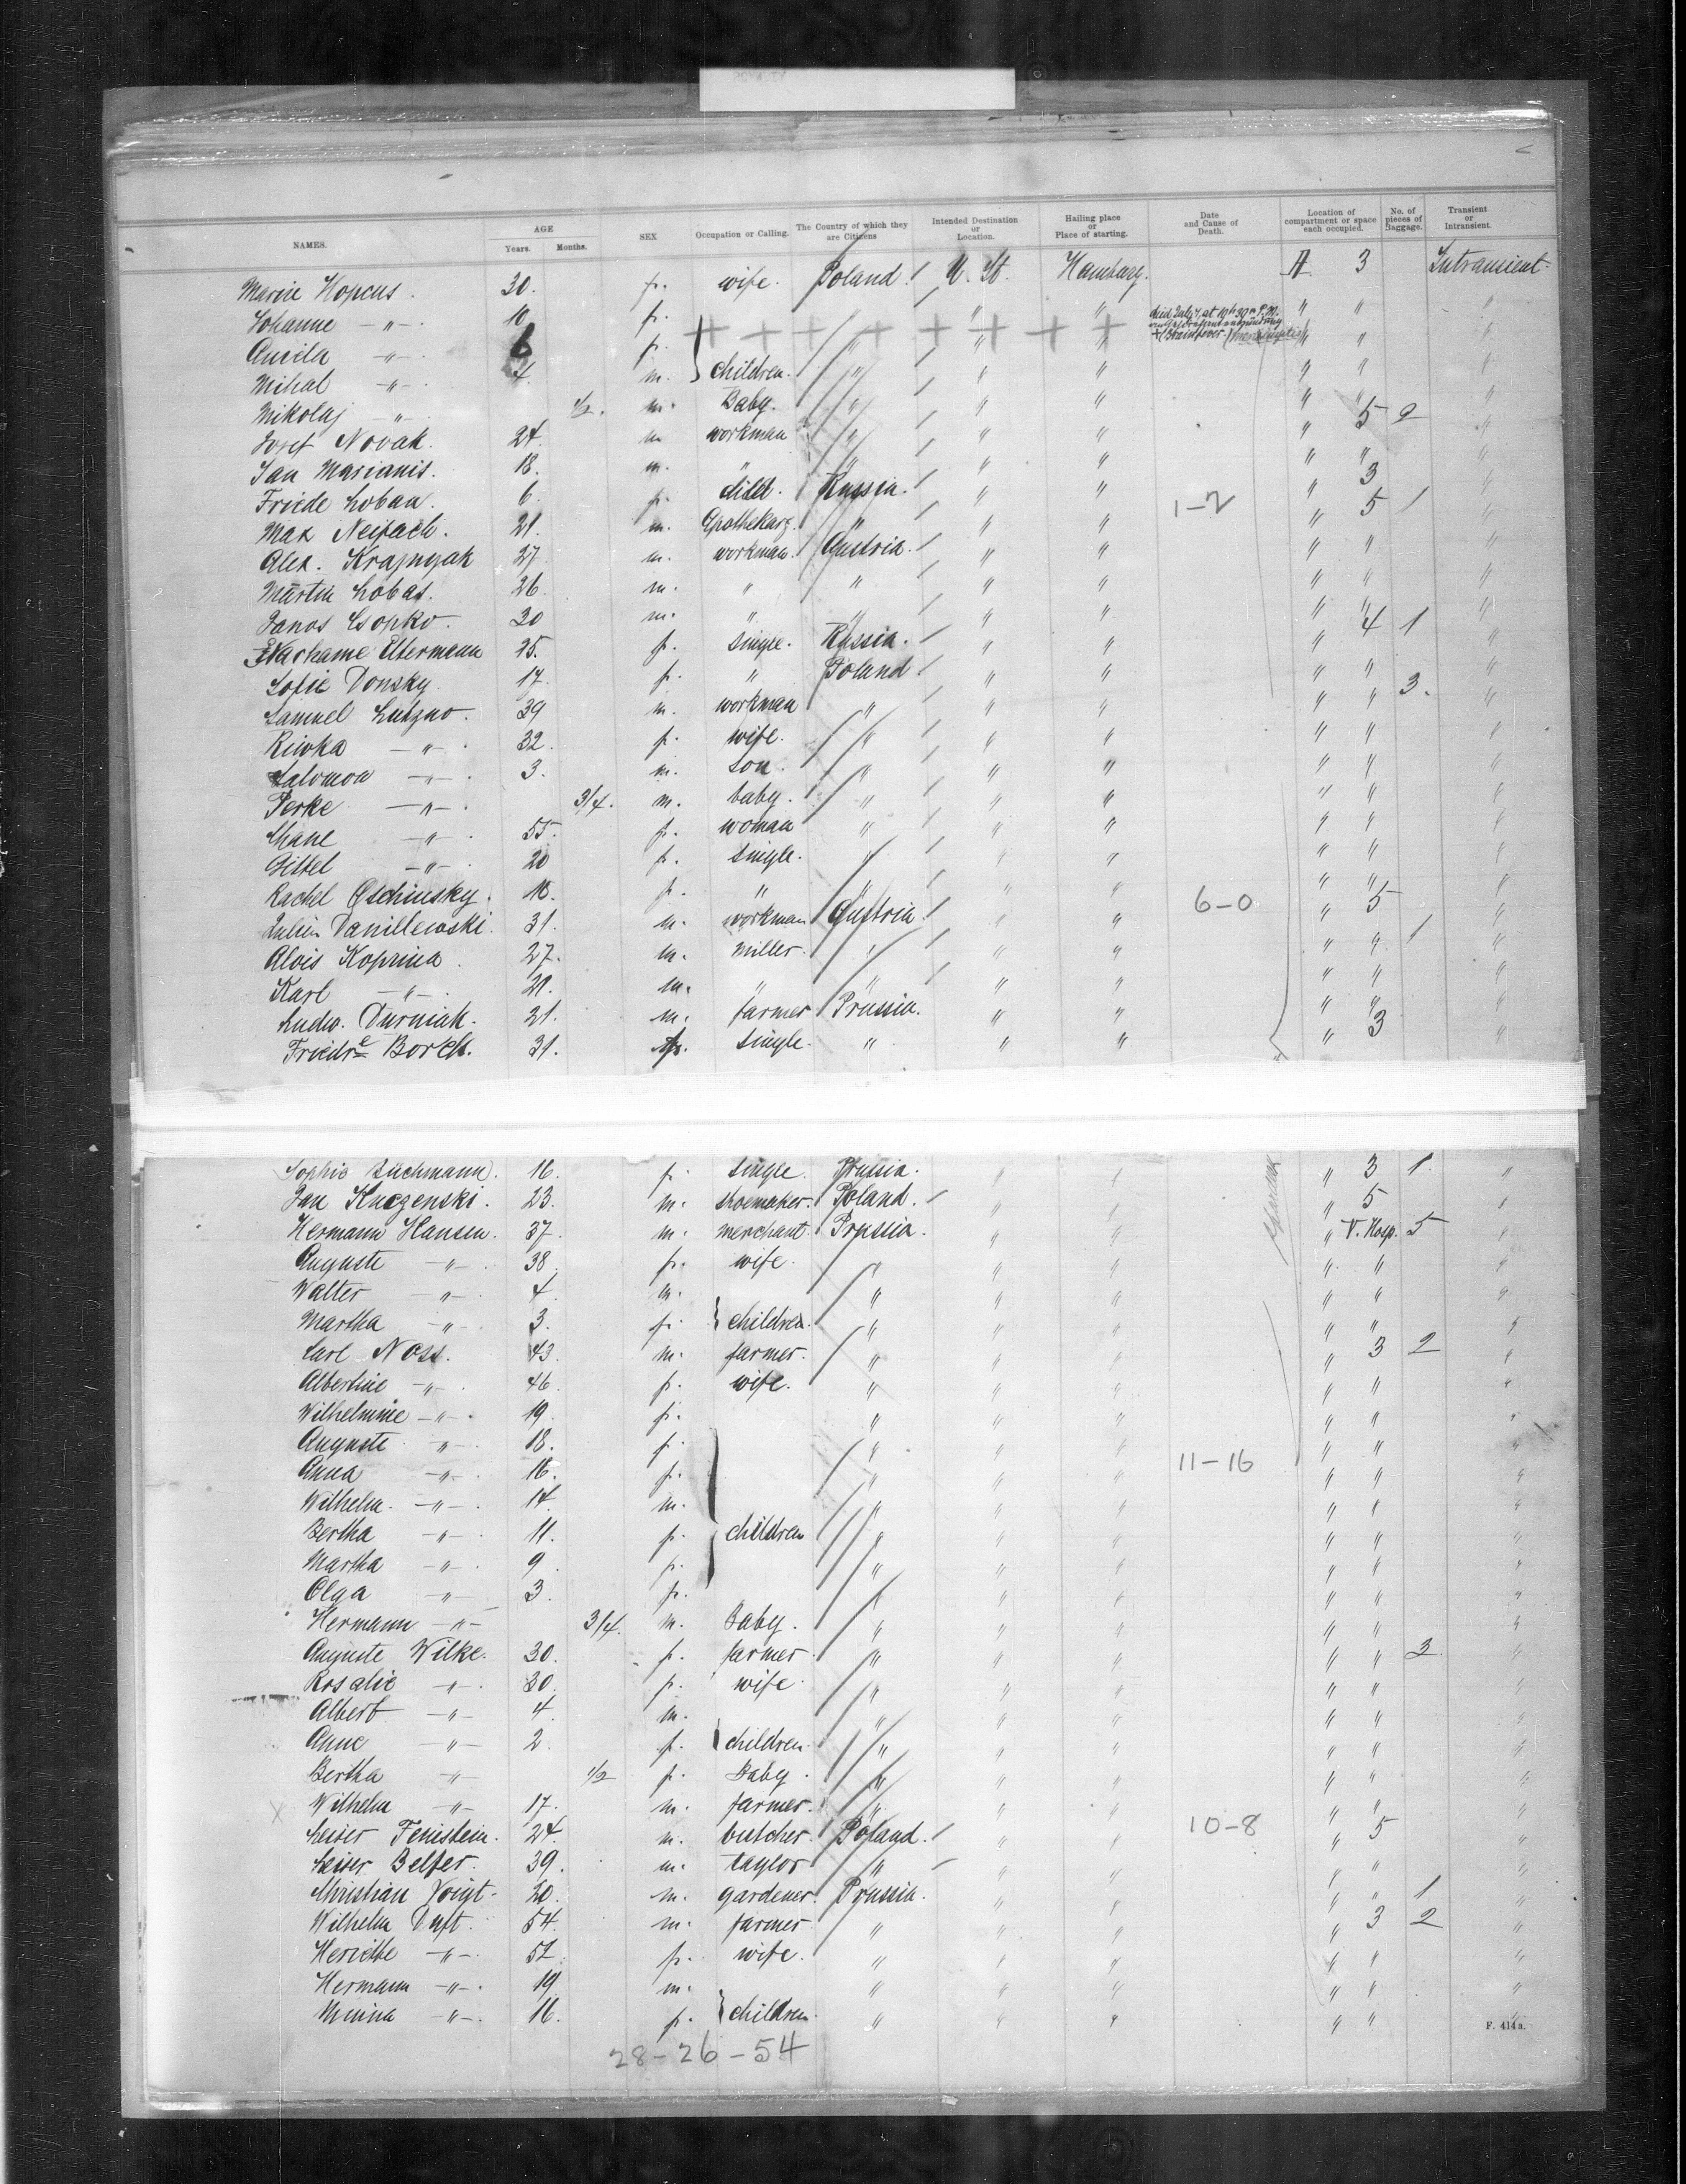 NAMES. AGE Years. Months. SEX Occupation or Calling. The Country of which they are Citizens Intended Destination or Location. Hailing place or Place of starting. Date and Cause of Death. Location of compartment or space each occupied. No. of pieces of Baggage. Transient or Intransient.
Marie Kopcus. 30. f. wife. Poland U. St. Hamburg. 3 Intransient
Johanne -"- 10. f. " "
Amila -"- 6 f. " " " " "
Mihal -"- 4. m. children. " " " " " "
Mikolaj -"- 1/2. m. Baby. " " " " " "
Josef Novak. 24. m workman " " " " 5 2 "
Jan Marianis. 18. m. " " " " " " "
Friede Loban. 6. f. child. Russia. " " " 3 "
Max Neifach. 21. m. Apothekary. " " " 1-2 " 5 1 "
Alex. Krajnyak 27 m. workman. Austria. " " " " "
Martin Lobas. 26. m. " " " " " " "
Janos Csopko. 30 m. " " " " " " "
Nachame Eltermann 25. f. single. Russia. " " " 4 1 "
Sofie Donsky. 17. f. " Poland " " " " "
Samuel 39 m. workman " " " " " 3. "
Riwka -"- 32. f. wife. " " " " " "
Salomon -"- 3. m. son. " " " " " "
Perke -"- 3/4. m. baby. " " " " " "
Chane -"- 55. f. woman " " " " " "
Gittel -"- 20 f. single. " " " " " "
Rachel Oschinsky. 18. f. " " " " " " "
Danillewski. 31. m. workman Austria. " " 6-0 " 5 "
Alois Koprina. 27. m. Miller. " " " " " 1 "
Karl -"- 21. m. " " " " " " "
Ludw. Durniak. 21. m. farmer Prussia. " " " " "
Friedre Borck. 31. single. " " " " 3 "
Sophie Buchmann. 16. f. single. Prussia. " " " 3 1. "
Jan Kuczenski. 23. m. shoemaker. Poland. " " " 5 "
Hermann Hansen. 37. m. merchant. Prussia. " " " V. Hosp. 5 "
Auguste -"- 38. f. wife. " " " " " "
Walter -"- 4. m. " " " " " "
Martha -"- 3. f. children. " " " " " "
Carl Noss. 43. m. farmer. " " " " 3 2 "
Albertine -"- 46. f. wife. " " " " " "
Wilhelmine -"- 19. f. " " " " " "
Auguste -"- 18. f. " " " " " "
Anna -"- 16. f. " " " 11-16 " " "
Wilhelm -"- 14. m. " " " " " "
Bertha -"- 11. f. children " " " " " "
Martha -"- 9. f. " " " " " "
Olga -"- 3. f. " " " " " "
Hermann -"- 3/4. m. Baby. " " " " " "
Auguste Wilke. 30. f. farmer. " " " " " 3. "
Rosalie -"- 30. f. wife. " " " " " "
Albert -"- 4. m. " " " " " "
Anne -"- 2. f. children. " " " " " "
Bertha -"- 1/2 f. Baby. " " " " " "
Wilhelm -"- 17. m. farmer. " " " " " "
Leiser Fenistein. 24. m. butcher. Poland. " " 10-8 " 5 "
Leiser Belfer. 39. m. taylor " " " " " "
Christian Voigt. 20. m. gardener. Prussia. " " " " 1 "
Wilhelm Duft. 54. m. farmer " " " " 3 2 "
Heriette -"- 52 f. wife. " " " " " "
Hermann -"- 19 m. " " " " " "
Minna -"- 16. f. children. " " " " "
F. 414a.
28-26-54